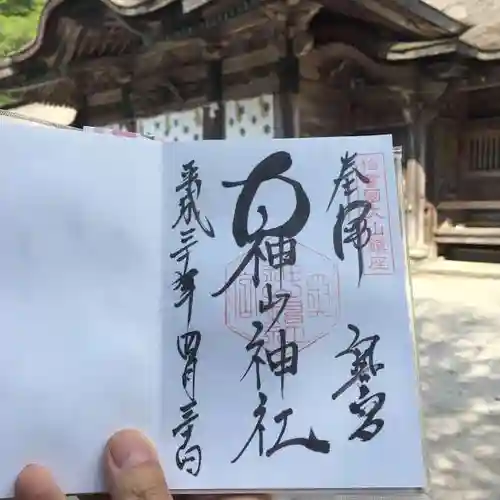 伯耆國大山鎮座
奉拝 奥宮
大神山神社
平成三十年四月三十日